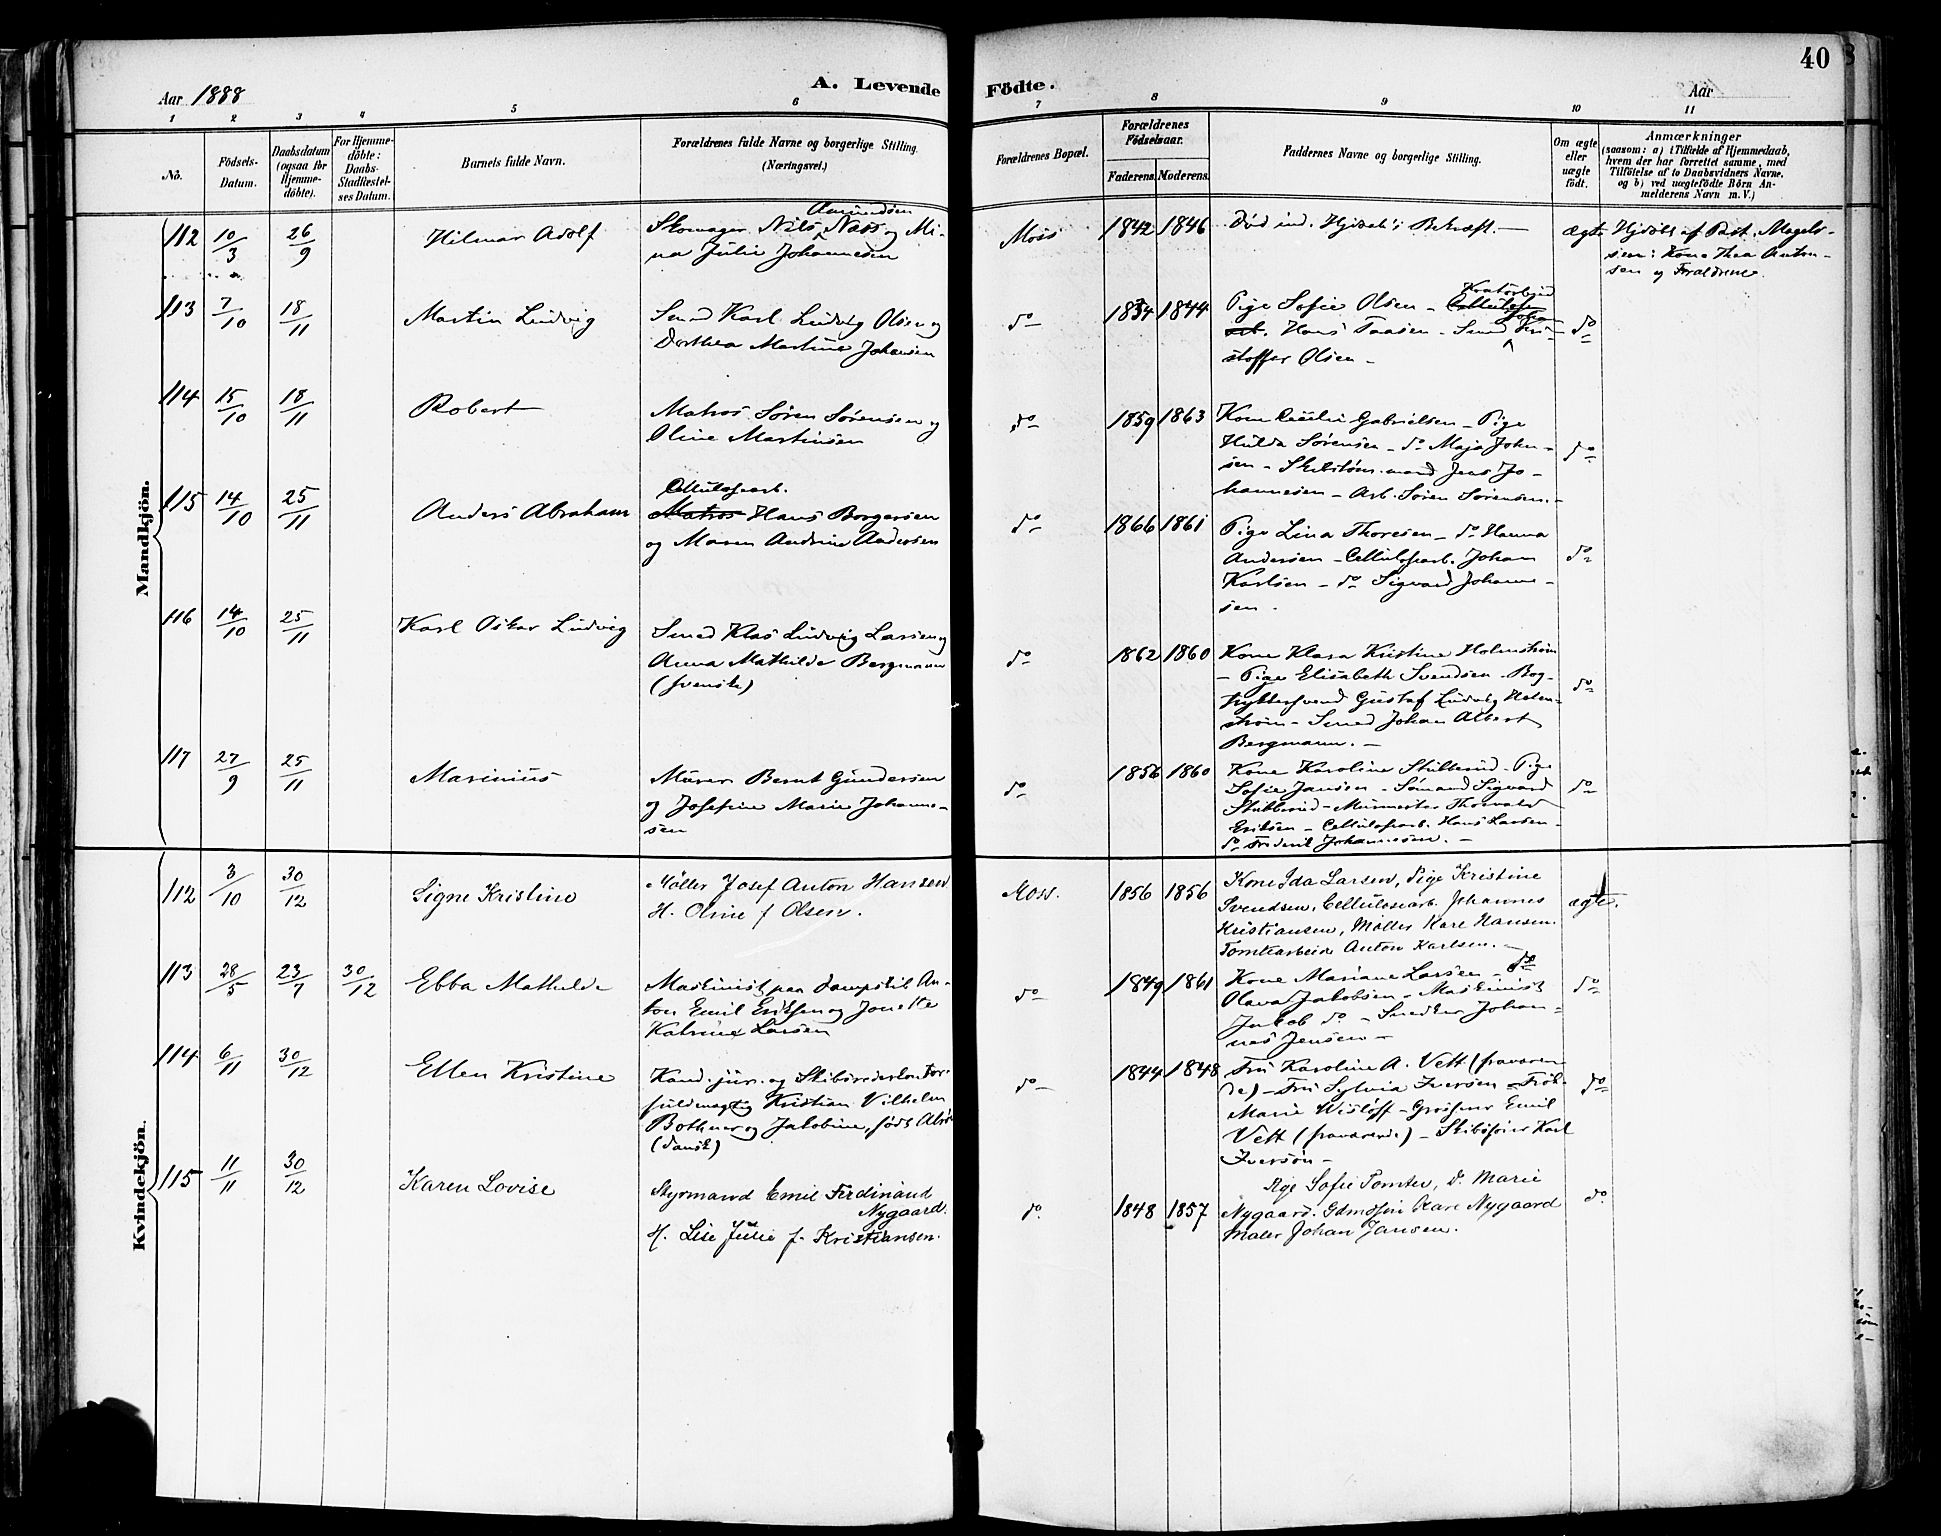 40
Aar 1888
A. Levende
Födte.
Aar
1 2 3 4 5 6 7 8 9 10 11
No.
Födsels-
Datum.
Daabsdatum
(ogsaa för
Hjemme-
döbte).
For Hjemme-
döbte:
Daabs-
Stadfestel-
ses Datum.
Barnets fulde Navn.
Forældrenes fulde Navne og borgerlige Stilling.
(Næringsvei.)
Forældrenes Bopæl.
Forældrenes
Födselsaar.
Faderens. Moderens.
Faddernes Navne og borgerlige Stilling.
Om ægte
eller
uægte
født.
Anmærkninger
(saasom: a) i Tilfælde af Hjemmedaab,
hvem der har forrettet samme, med
Tilföielse af to Daabsvidners Navne,
og b) ved uægtefödte Börn An-
melderens Navn m. V.)
Mandkjön.
112 10/3 26/9
Hilmar Adolf
Amundsen
Skomager Nils Næss og Mi-
na Julie Johannesen
Moss
1842 1846
Død ind.
ægte
Hjdøbt af Pastor
Kone Thea Anton-
sen og Forældrene.
113 7/10 18/11
Martin Ludvig
Smed Karl Ludvig Olsen og
Dorthea Martine Johansen
do
1834 1844
Pige Sofie Olsen -
Hans Taasen - Smed Kri-
stoffer Olsen -
do
114 15/10 18/11
Robert
Matros Søren Sørensen og
Oline Martinsen
do
1859 1863
Kone Cecilie Gabrielsen - Pige
Hulda Sørensen - do Maja John-
sen - mand Jens Jo-
hannesen - Arb. Søren Sørensen. -
do
115 14/10 25/11
Anders Abraham
Cellulosearb.
Matros Hans Borgersen
og Maren Andrine Andersen
do
1866 1861
Pige Lina Thoresen - do Hanna
Andersen - Cellulosearb. Johan
Karlsen - do Sigvard Johanne-
sen.
do
116 14/10 25/11
Karl Oskar Ludvig
Smed Klas Ludvig Larsen og
Anna Mathilde Bergmann
(svensk)
do
1862 1860
Kone Klara Kristine Holmstrøm
- Pige Elisabeth Svendsen - Bog-
trykkersvend Gustaf Ludvig Holm-
strøm - Smed Johan Albert
Bergmann. -
do
117 27/9 25/11
Marinius
Murer Bernt Gundersen
og Josefine Marie Johanne-
sen
do
1856 1860
Kone Karoline Stubberud - Pige
Sofie Jansen - Sømand Sigvard
Stubberud - Murmester Thorvald
Eriksen - Cellulosearb. Hans Larsen -
do Frederik Johannesen. -
do
Kvindekjön.
112 3/10 30/12
Signe Kristine
Møller Josef Anton Hansen
H. Oline f. Olsen.
Moss.
1856 1856
Kone Ida Larsen, Pige Kristine
Svendsen, Cellulosearb. Johannes
Kristiansen, Møller Kare Hansen.
Tomtearbeid. Anton Karlsen. -
ægte.
113 28/5 23/7 30/12
Ebba Mathilde
Maskinist paa Dampskib An-
ton Emil Eriksen og Jonette
Katrine Larsen
do
1849 1861
Kone Mariane Larsen - do
Olava Jakobsen - Maskinist
Jakob do - Snedker Johan-
nes Jensen -
do
114 6/11 30/12
Ellen Kristine
Kand. jur. og Skibsrederkontor-
fuldmægtig Kristian Vilhelm
Bothner og Jakobine, født
(dansk)
do
1844 1848
Fru Karoline A. Vett (fraværen-
de) - Fru Sylvia Iversøn - Frøk.
Marie Wisløff - Grosserer Emil
Vett (fraværende) - Skibsfører Karl
Iversøn -
do
115 11/11 30/12
Karen Lovise
Styrmand Emil Ferdinand
Nygaard.
H. Lise Julie f. Kristiansen.
do.
1848 1857
Pige Sofie Tomter, do Marie
Nygaard. Kare Nygaard
Maler Johan Jansen.
do